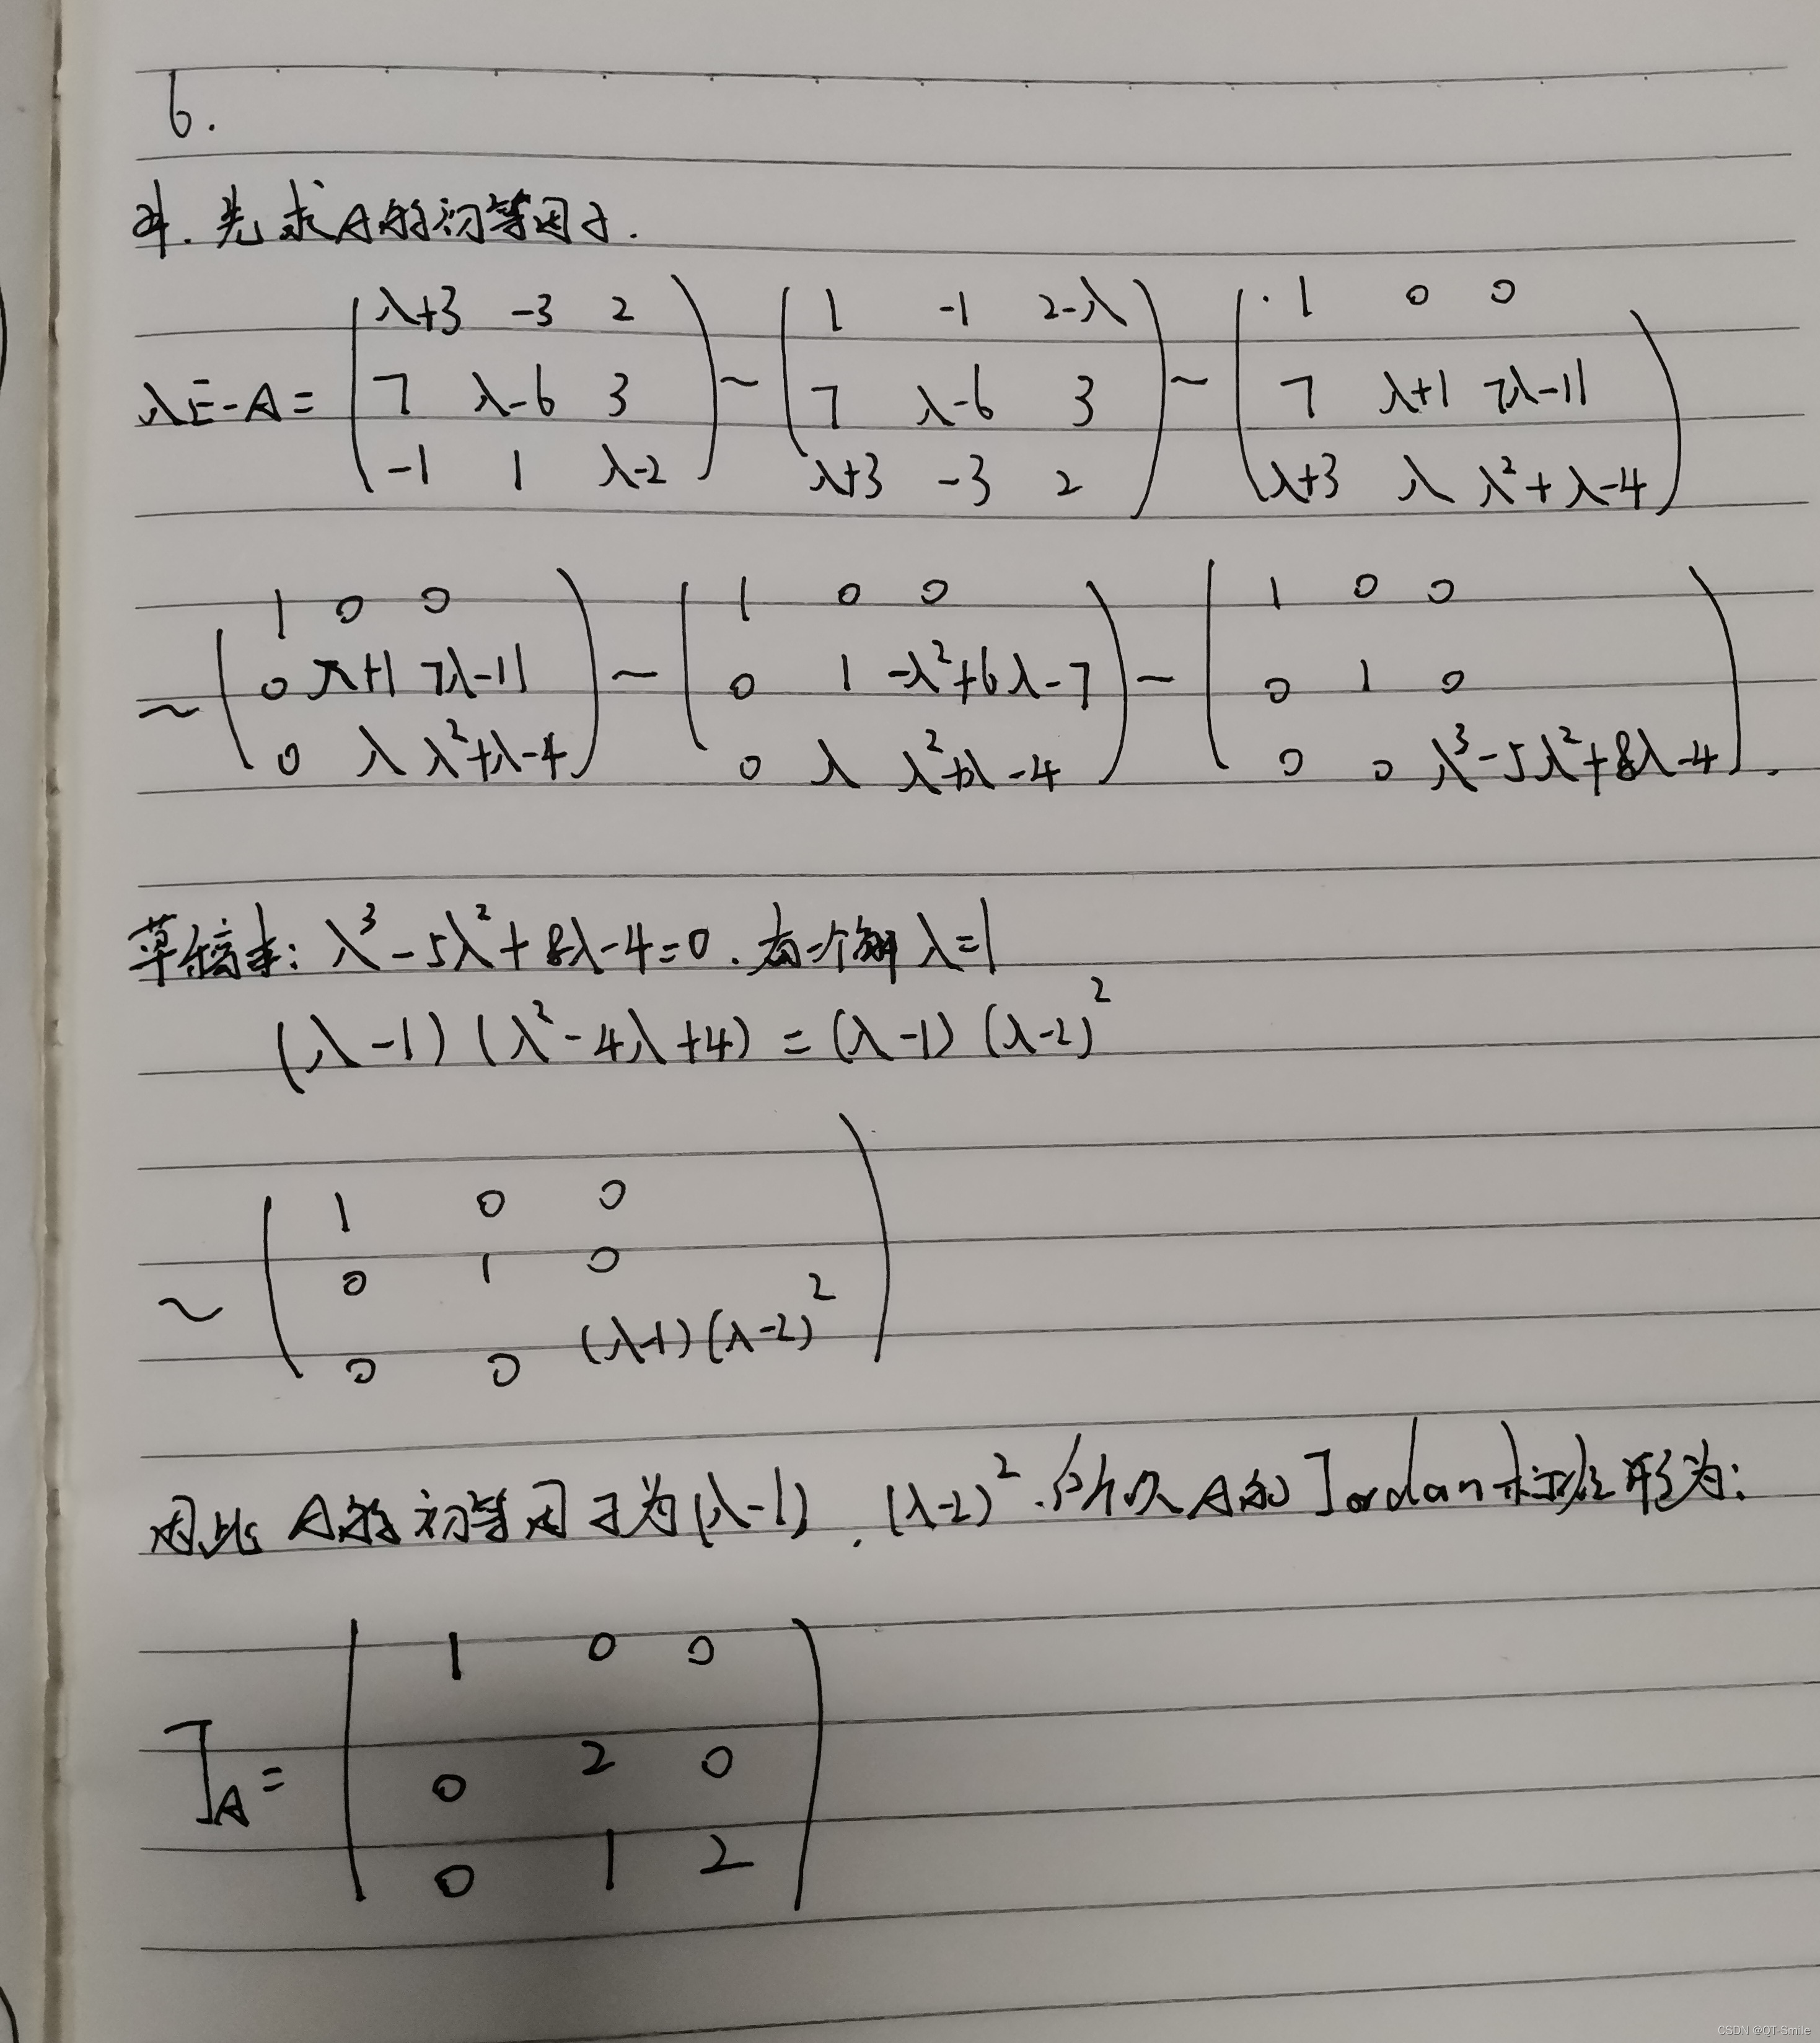 6.
解.先求A的初等因子.
λE-A= ( λ+3 -3 2 ; 7 λ-6 3 ; -1 1 λ-2 ) ~ ( 1 -1 2-λ ; 7 λ-6 3 ; λ+3 -3 2 ) ~ ( 1 0 0 ; 7 λ+1 7λ-11 ; λ+3 λ λ²+λ-4 )
~ ( 1 0 0 ; 0 λ+1 7λ-11 ; 0 λ λ²+λ-4 ) ~ ( 1 0 0 ; 0 1 -λ²+6λ-7 ; 0 λ λ²+λ-4 ) ~ ( 1 0 0 ; 0 1 0 ; 0 0 λ³-5λ²+8λ-4 ).
草稿本: λ³-5λ²+8λ-4=0. 有一个解 λ=1
(λ-1)(λ²-4λ+4)=(λ-1)(λ-2)²
~ ( 1 0 0 ; 0 1 0 ; 0 0 (λ-1)(λ-2)² )
因此 A的初等因子为(λ-1),(λ-2)².所以A的Jordan标准形为:
J_A= ( 1 0 0 ; 0 2 0 ; 0 1 2 )
CSDN @QT-Smile